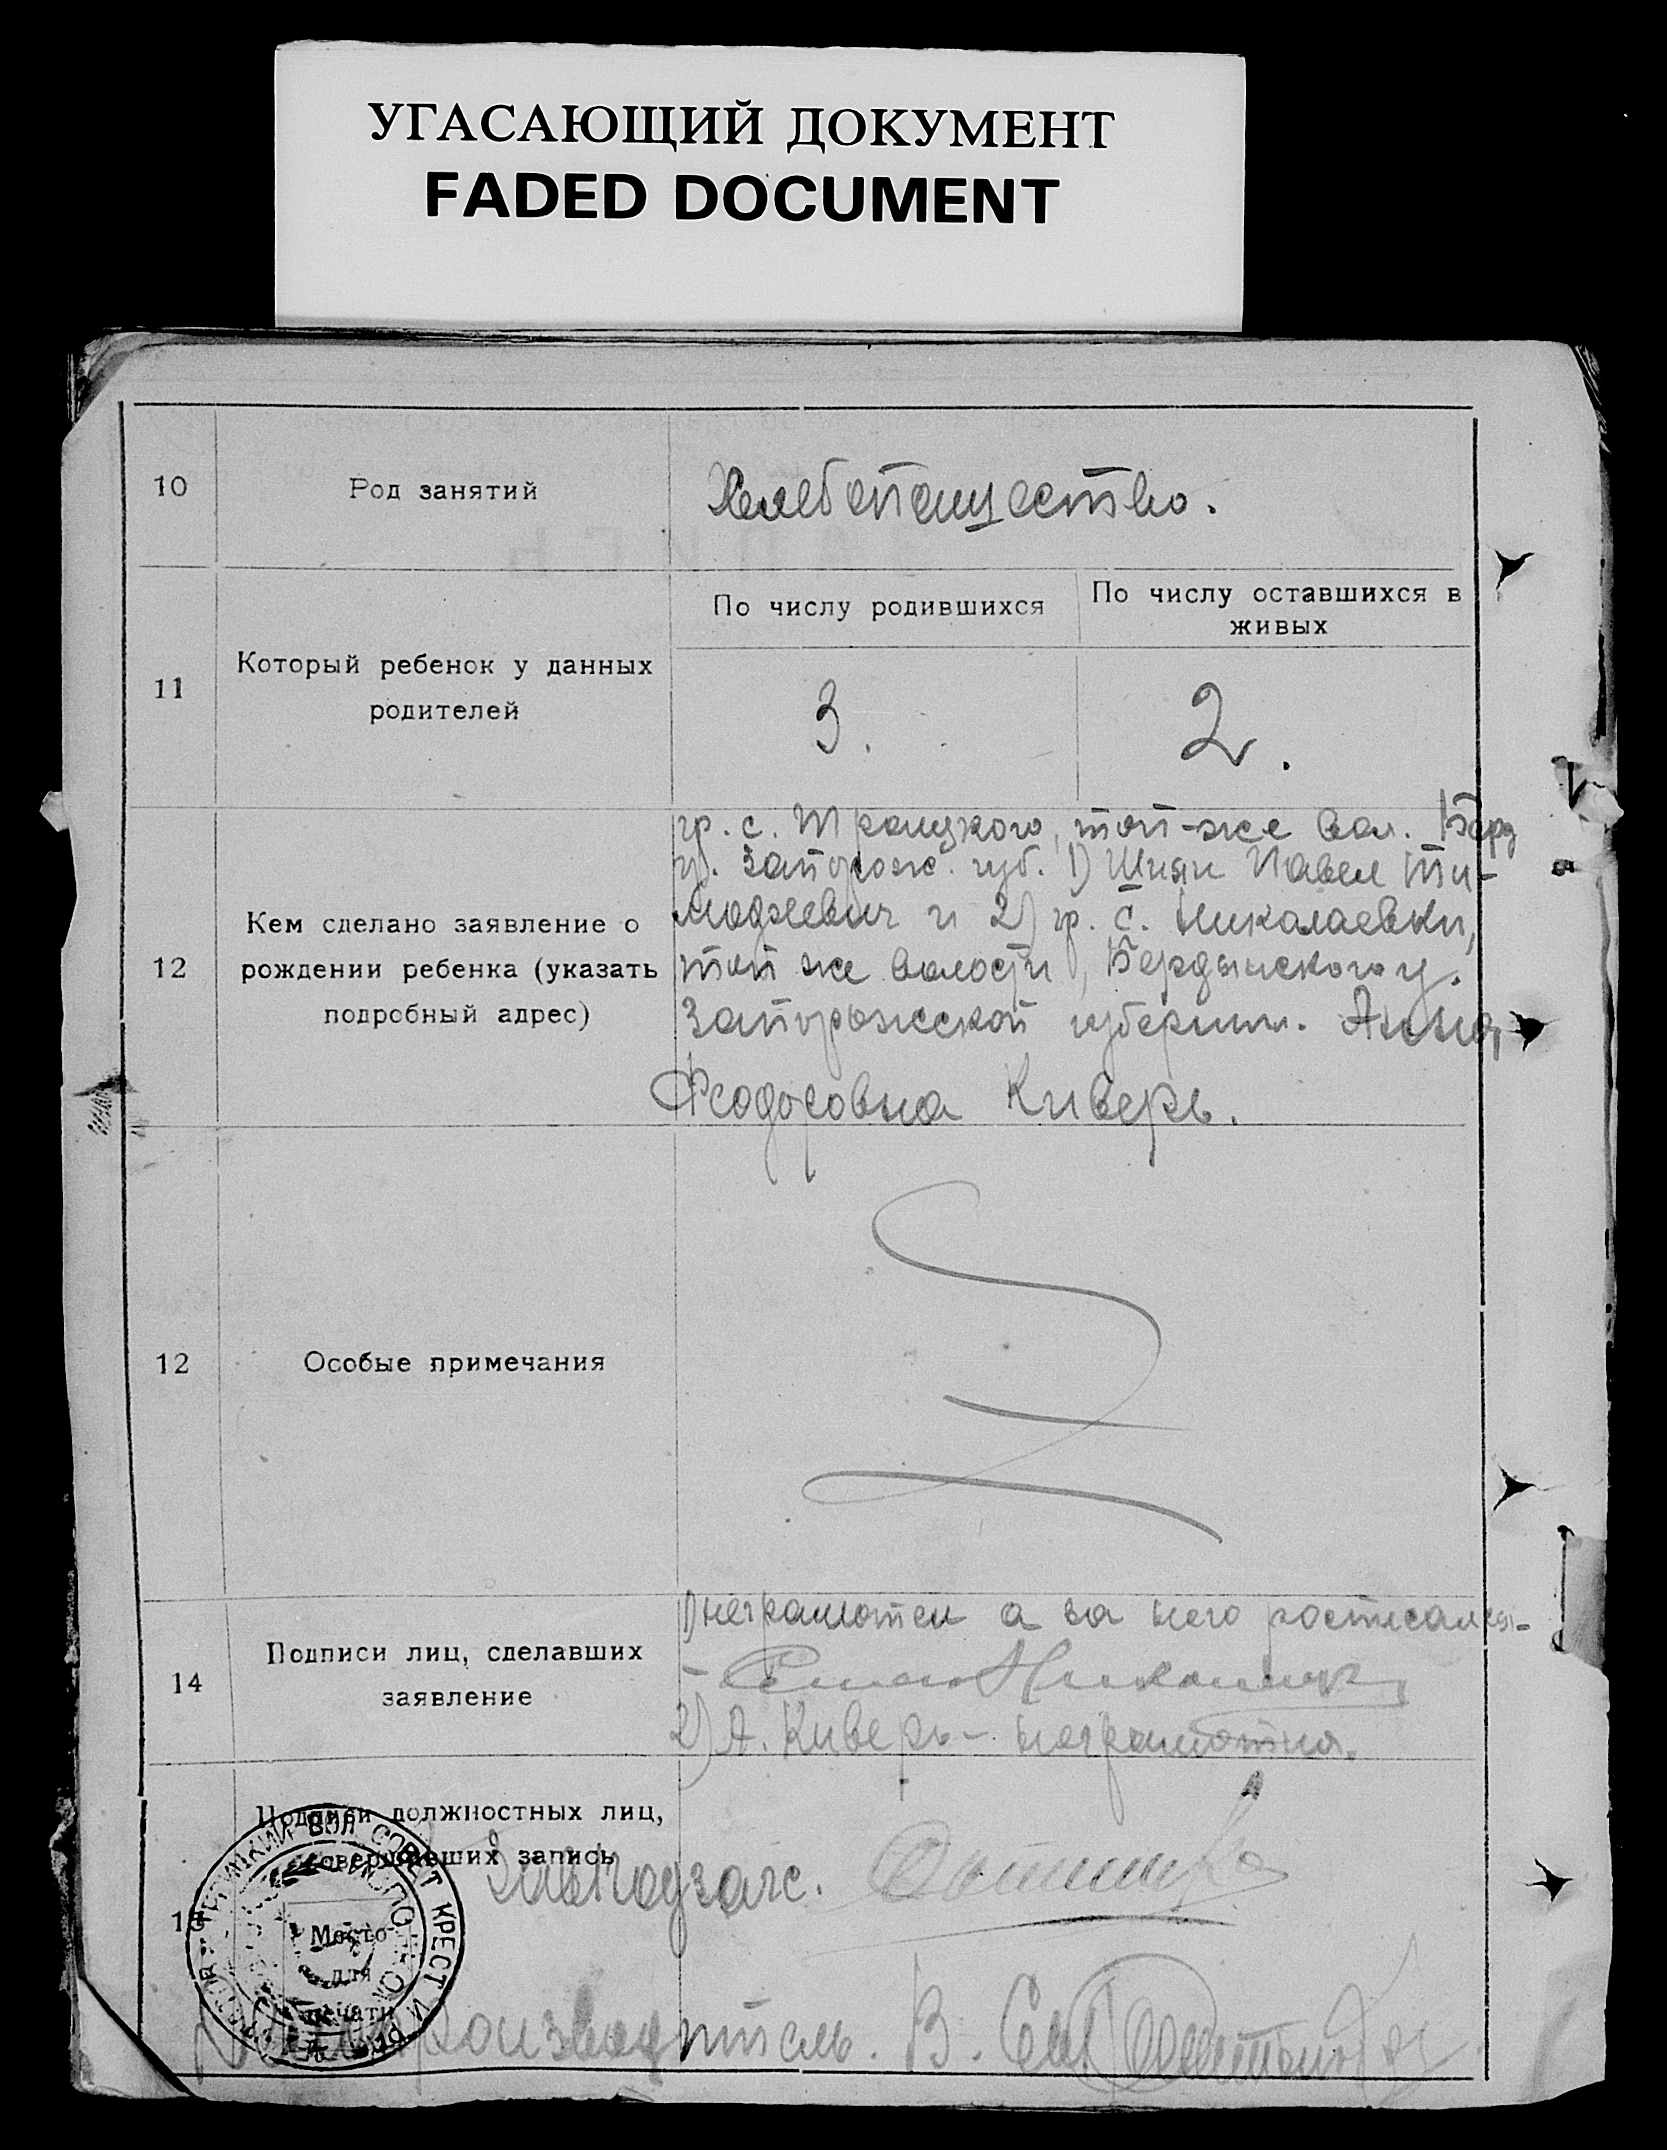 УГАСАЮЩИЙ ДОКУМЕНТ
FADED DOCUMENT
10
Род занятий
Хлебопашество.
11
Который ребенок у данных
родителей
По числу родившихся
По числу оставшихся в
живых
3.
2.
12
Кем сделано заявление о
рождении ребенка (указать
подробный адрес)
гр. с. Троицкого, той-же вол. Берд
у. Запорож. губ. 1) Шиян Павел Ти-
мофеевич и 2) гр. с. Николаевки,
той же волости, Бердянского у.
Запорожской губернии. Анна
Феодоровна Киверь.
12
Особые примечания
14
Подписи лиц, сделавших
заявление
1) неграмотен а за него росписался-
2) А. Киверь - неграмотна.
Подписи должностных лиц,
совершивших запись
Завподзагс.
Место
для
печати
Делопроизводитель. В.
ВОЛ СОВЕТ КРЕСТ И